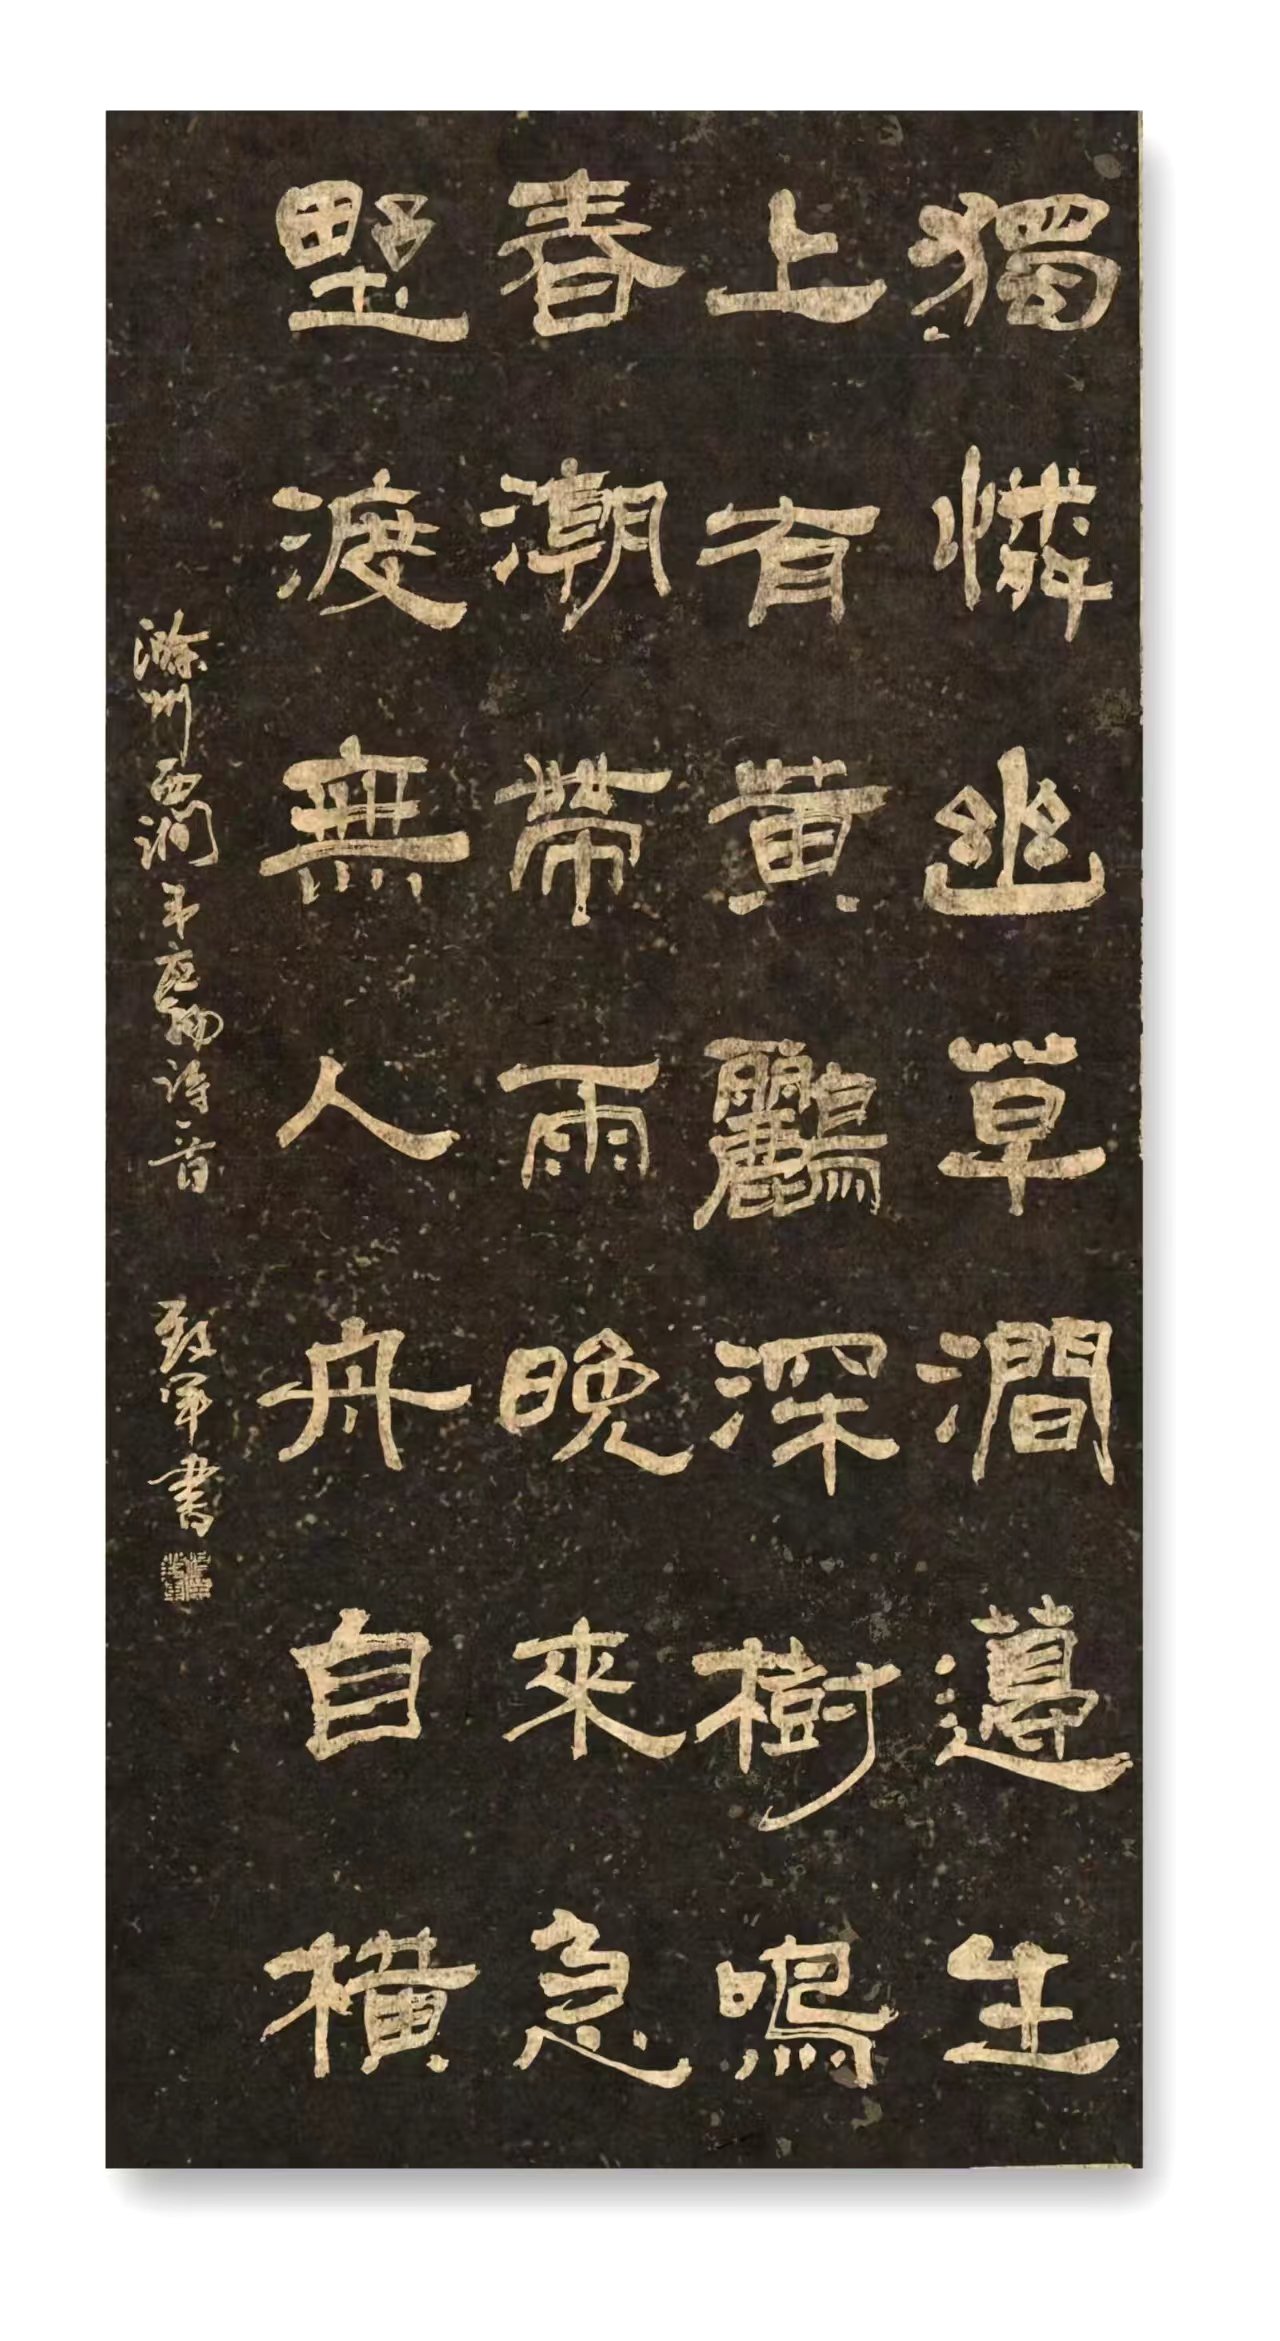 獨憐幽草澗邊生
上有黄鸝深樹鳴
春潮帶雨晚來急
野渡無人舟自橫
滁州西涧韦应物诗一首 军书